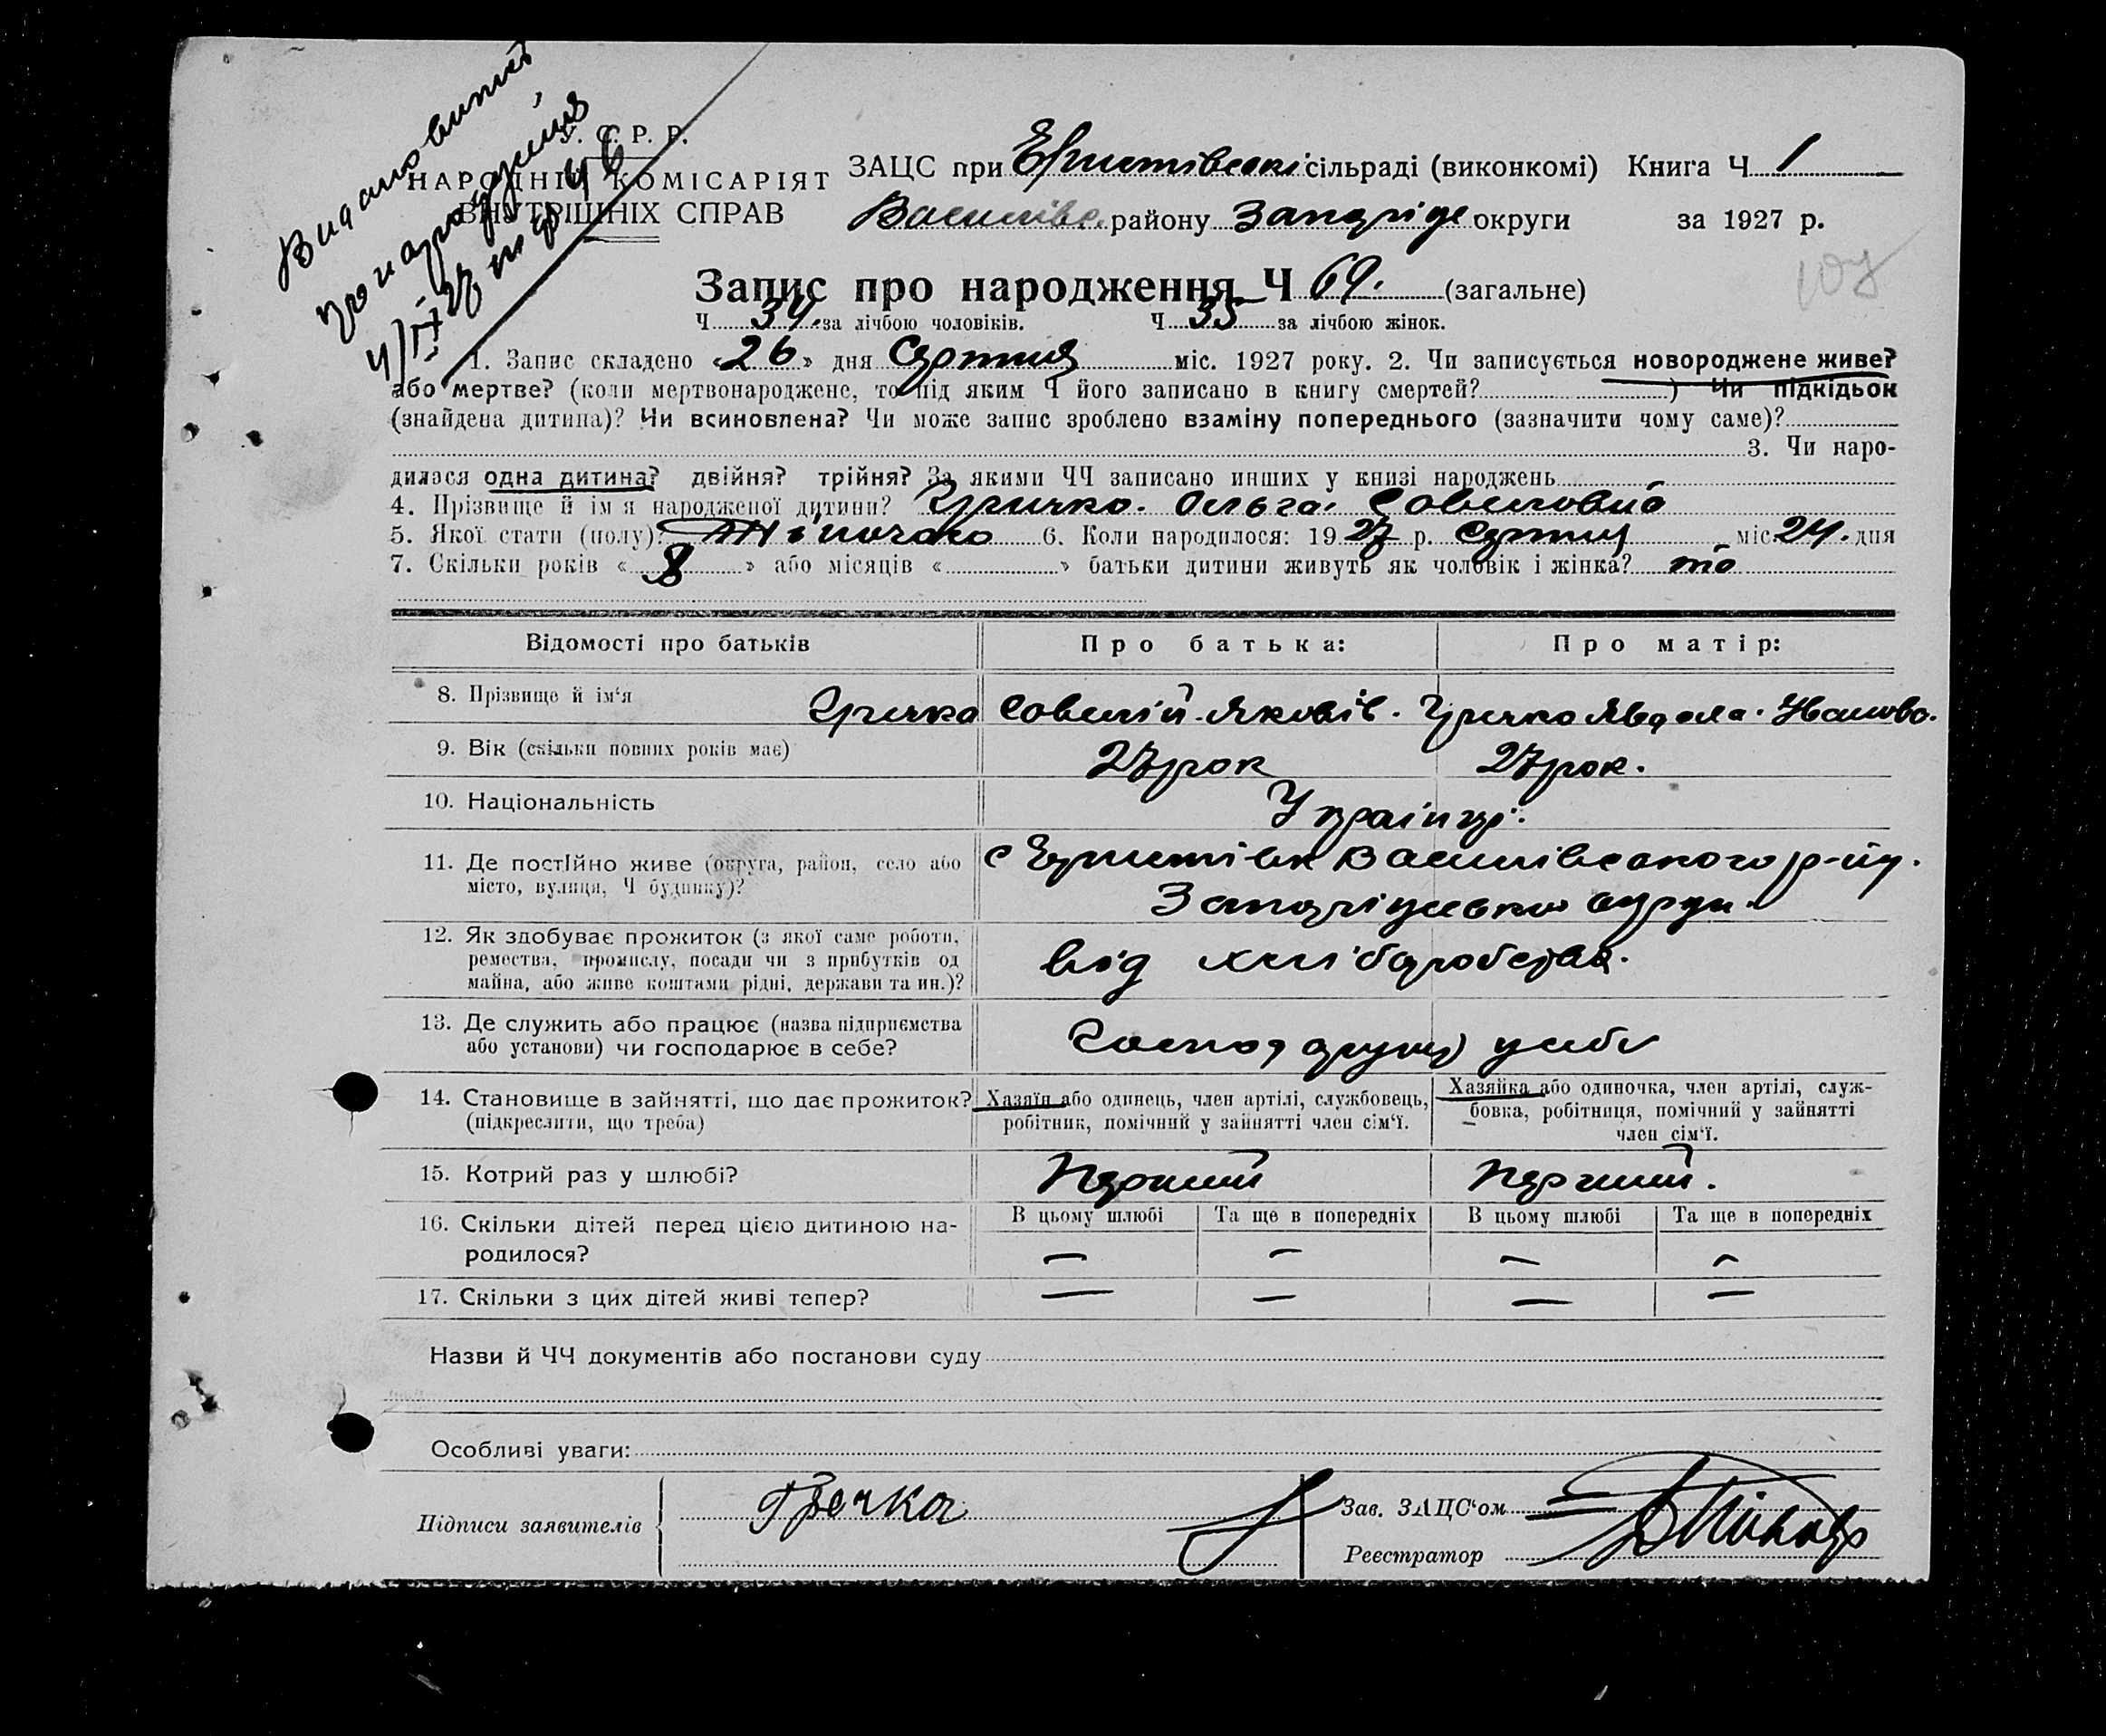 Видано витяг
про народження
4/IX 27 р № 46
У. С. Р. Р.
НАРОДНІЙ КОМІСАРІЯТ
ВНУТРІШНІХ СПРАВ
ЗАЦС при Єристівські сільраді (виконкомі) Книга Ч. 1
Василівс. району Запоріж округи за 1927 р.
107
Запис про народження Ч 69. (загальне)
Ч. 34. за лічбою чоловіків. Ч. 35 за лічбою жінок.
1. Запис складено «26» дня Серпня міс. 1927 року. 2. Чи записується новороджене живе?
або мертве? (коли мертвонароджене, то під яким Ч його записано в книгу смертей? ) Чи підкідьок
(знайдена дитина)? Чи всиновлена? Чи може запис зроблено взаміну попереднього (зазначити чому саме)?
3. Чи наро-
дилася одна дитина? двійня? трійня? За якими ЧЧ записано инших у книзі народжень
4. Прізвище й ім'я народженої дитини? Гричко. Ольга. Савеловна
5. Якої стати (полу)? Жіночого 6. Коли народилося: 1927 р. Серпня міс. 24. дня
7. Скільки років «8» або місяців « » батьки дитини живуть як чоловік і жінка?
Відомості про батьків Про батька: Про матір:
8. Прізвище й ім'я Гричко Савелій Яковів. Гричко Явдоха. Іванова.
9. Вік (скільки повних років має) 27 рок 27 рок.
10. Національність Українці.
11. Де постійно живе (округа, район, село або с Єристівк Василівського р-ну.
місто, вулиця, Ч будинку)? Запоріжської округи.
12. Як здобуває прожиток (з якої саме роботи,
ремества, промислу, посади чи з прибутків од від хліборобства.
майна, або живе коштами рідні, держави та ин.)?
13. Де служить або працює (назва підприємства
або установи) чи господарює в себе? Господарують у себе
14. Становище в зайнятті, що дає прожиток? Хазяїн або одинець, член артілі, службовець, Хазяйка або одиночка, член артілі, служ-
(підкреслити, що треба) робітник, помічний у зайнятті член сім'ї. бовка, робітниця, помічний у зайнятті
член сім'ї.
15. Котрий раз у шлюбі? Перший Перший.
16. Скільки дітей перед цією дитиною на- В цьому шлюбі Та ще в попередніх В цьому шлюбі Та ще в попередніх
родилося? — — — —
17. Скільки з цих дітей живі тепер? — — — —
Назви й ЧЧ документів або постанови суду
Особливі уваги:
Підписи заявителів Гречка Зав. ЗАЦС'ом
Реєстратор